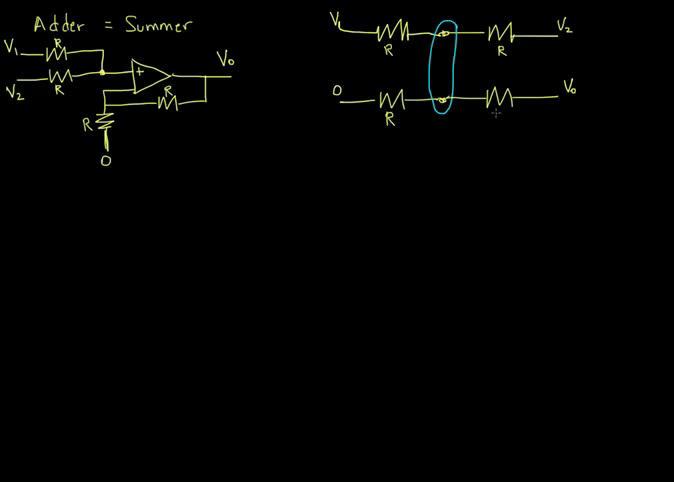 Adder = Summer
V₁ R
V₂ R
+
R
V₀
R
0
V₁ R R V₂
0 R V₀